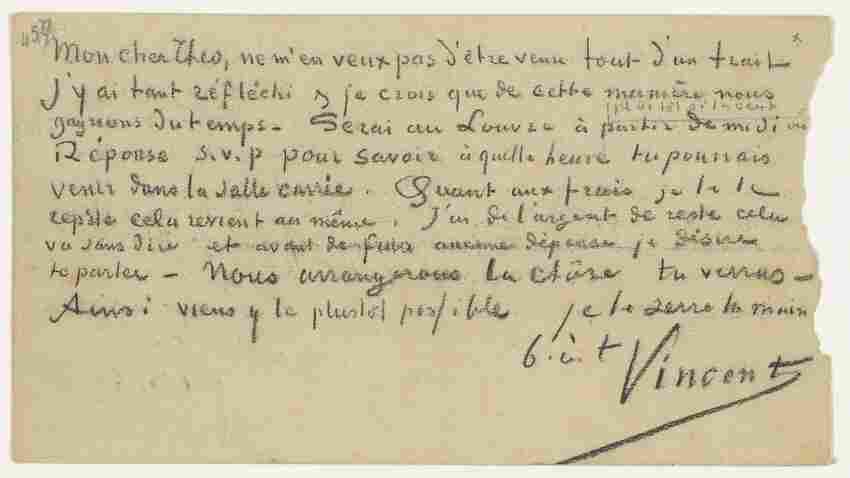 Mon cher Theo, ne m'en veux pas d'être venu tout d'un trait
J'y ai tant réfléchi & je crois que de cette manière nous
gagnons du temps - Serai au Louvre à partir de midi
ou plus tôt si tu veux
Réponse s.v.p pour savoir à quelle heure tu pourrais
venir dans la salle carrée. Quant aux frais je te le
repète cela revient au même. J'ai de l'argent de reste cela
va sans dire et avant de faire aucune dépense je désire
te parler - Nous arrangerons la chôse tu verras -
Ainsi viens y le plustôt possible je te serre la main
b. à. t Vincent